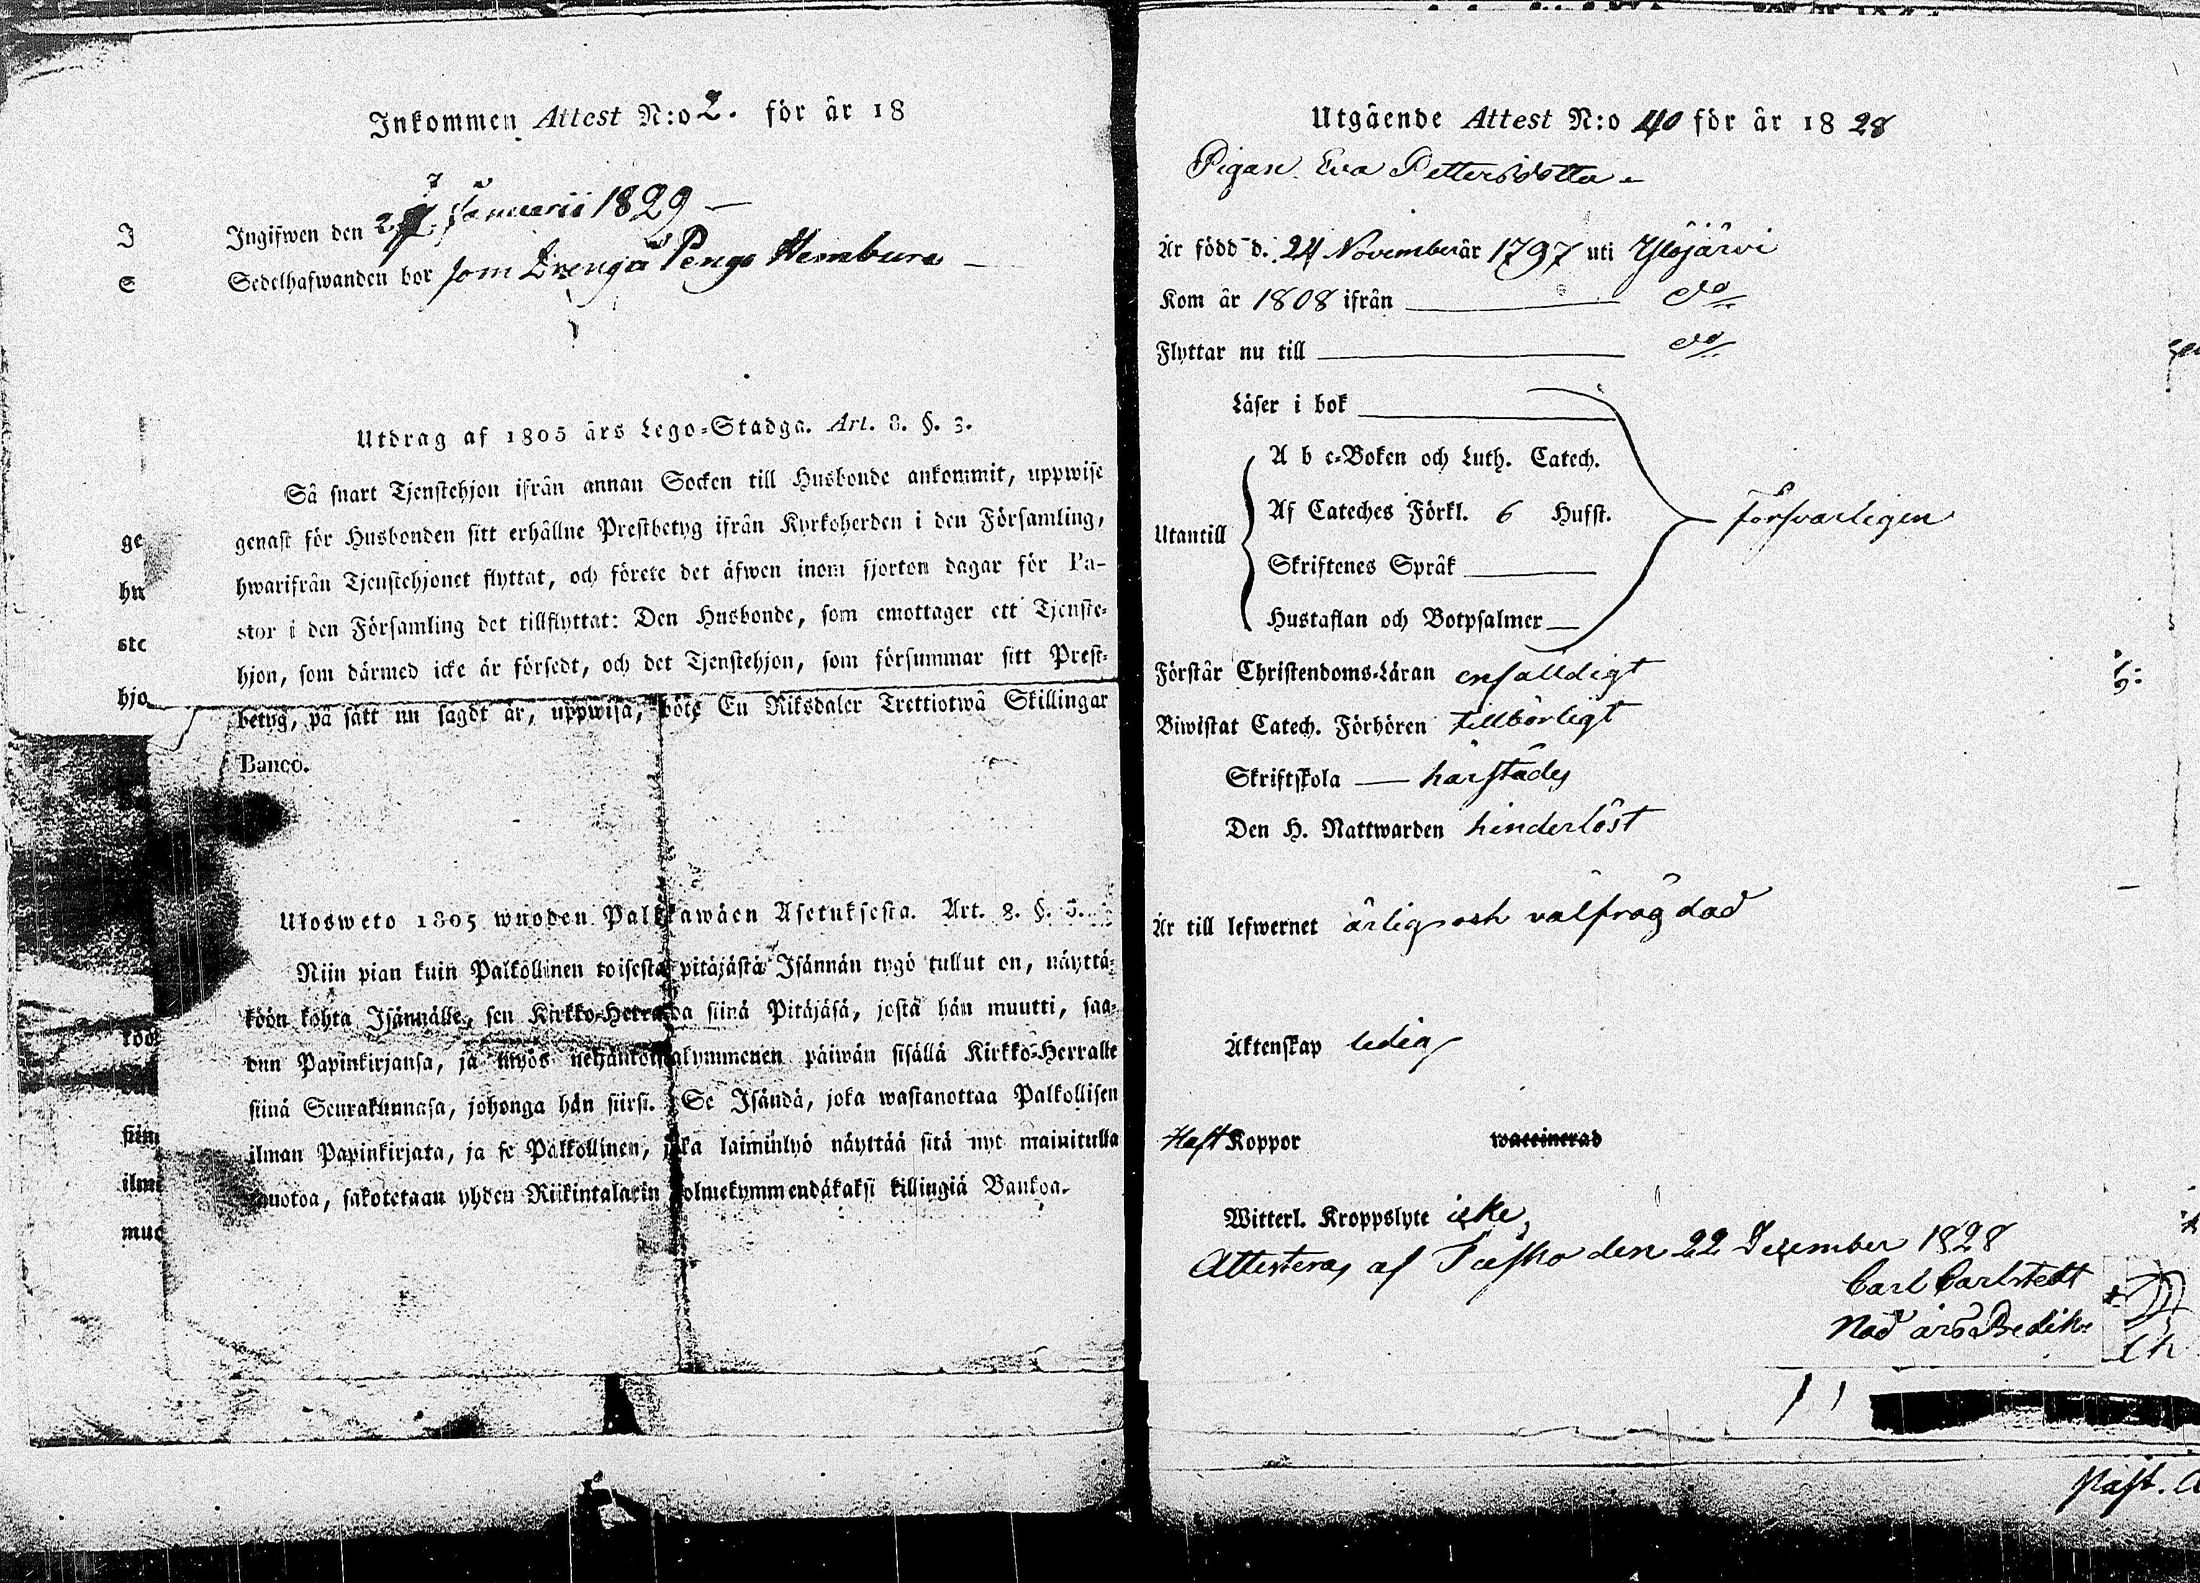 Inkommen Attest N:o 2. för år 18
Ingifwen den 27 Januarii 1829
Sedelhafwanden bor som Dreng å Pengo Hembure
Utdrag af 1805 års Lego-Stadga. Art. 8. §. 3.
Så snart Tjenstehjon ifrån annan Socken till Husbonde ankommit, uppwise
genast för Husbonden sitt erhållne Prestbetyg ifrån Kyrkoherden i den Församling,
hwarifrån Tjenstehjonet flyttat, och förete det äfwen inom fjorton dagar för Pa-
stor i den Församling det tillflyttat: Den Husbonde, som emottager ett Tjenste-
hjon, som därmed icke är försedt, och det Tjenstehjon, som försummar sitt Prest-
betyg, på sätt nu sagdt är, uppwisa, böte En Riksdaler Trettiotwå Skillingar
Banco.
Ulosweto 1805 wuoden Palkkawäen Asetuksesta. Art. 8. §. 3.
Niin pian kuin Palkollinen toisesta pitäjästä Isännän tygö tullut on, näyttä-
köön kohta Isännälle, sen Kirkko-Herralda siinä Pitäjäsä, jostä hän muutti, saa-
dun Papinkirjansa, ja myös neljäntoistakymmenen päiwän sisällä Kirkko-Herralle
siinä Seurakunnasa, johonga hän siirsi. Se Isändä, joka wastanottaa Palkollisen
ilman Papinkirjata, ja se Palkollinen, joka laiminlyö näyttää sitä nyt mainitulla
muotoa, sakotetaan yhden Riikintalarin kolmekymmendäkaksi killingiä Bankoa.
I
S
ge
hw
ste
hjo
siin
ilm
muo
Utgående Attest N:o 40 för år 1828
Pigan Eva Pettersdotter
Är född d. 24 November år 1797 uti Ylöjärvi
Kom år 1808 ifrån do
Flyttar nu till do
Läser i bok
A b c-Boken och Luth. Catech.
Utantill Af Cateches Förkl. 6 Hufst. Försvarligen
Skriftenes Språk
Hustaflan och Botpsalmer
Förstår Christendoms-Läran enfalldigt
Biwistat Catech. Förhören tillbörligt
Skriftskola härstädes
Den H. Nattwarden hinderlöst
Är till lefwernet ärlig och välfrägdad
Äktenskap ledig
Haft Koppor waccinerad
Witterl. Kroppslyte icke
Attesteras af den 22 December 1828
Carl Carlstedt
Nåd års Predik.
Past.